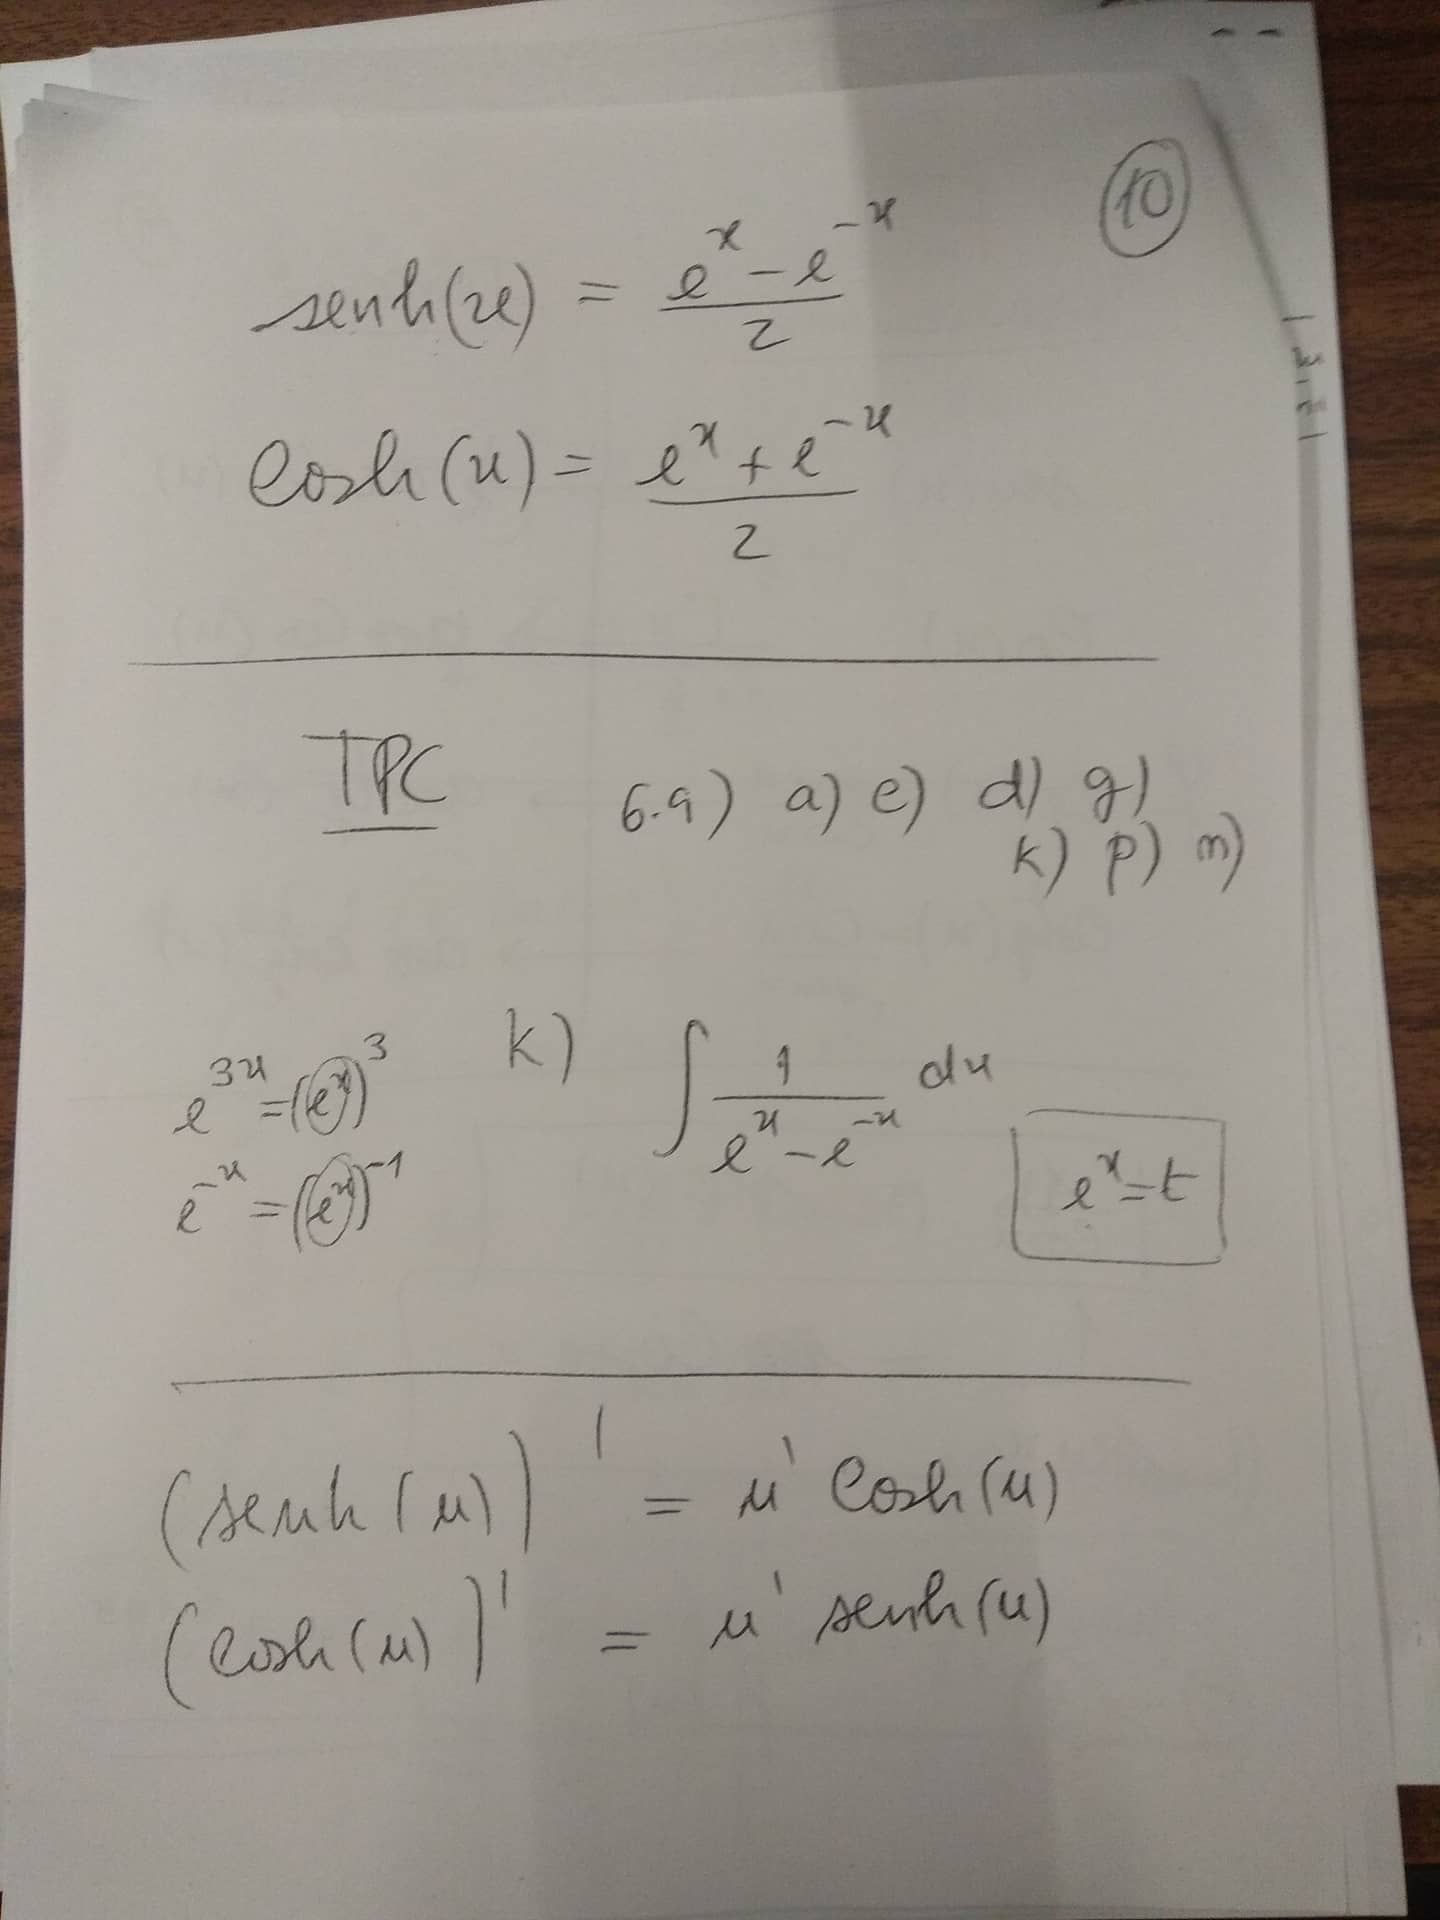 10
senh(x) = (e^x - e^-x)/2
cosh(x) = (e^x + e^-x)/2
TPC 6.9) a) e) d) g)
k) p) n)
e^3x = (e^x)^3 k) ∫ 1/(e^x - e^-x) dx
e^-x = (e^x)^-1 e^x = t
(senh(u))' = u' cosh(u)
(cosh(u))' = u' senh(u)